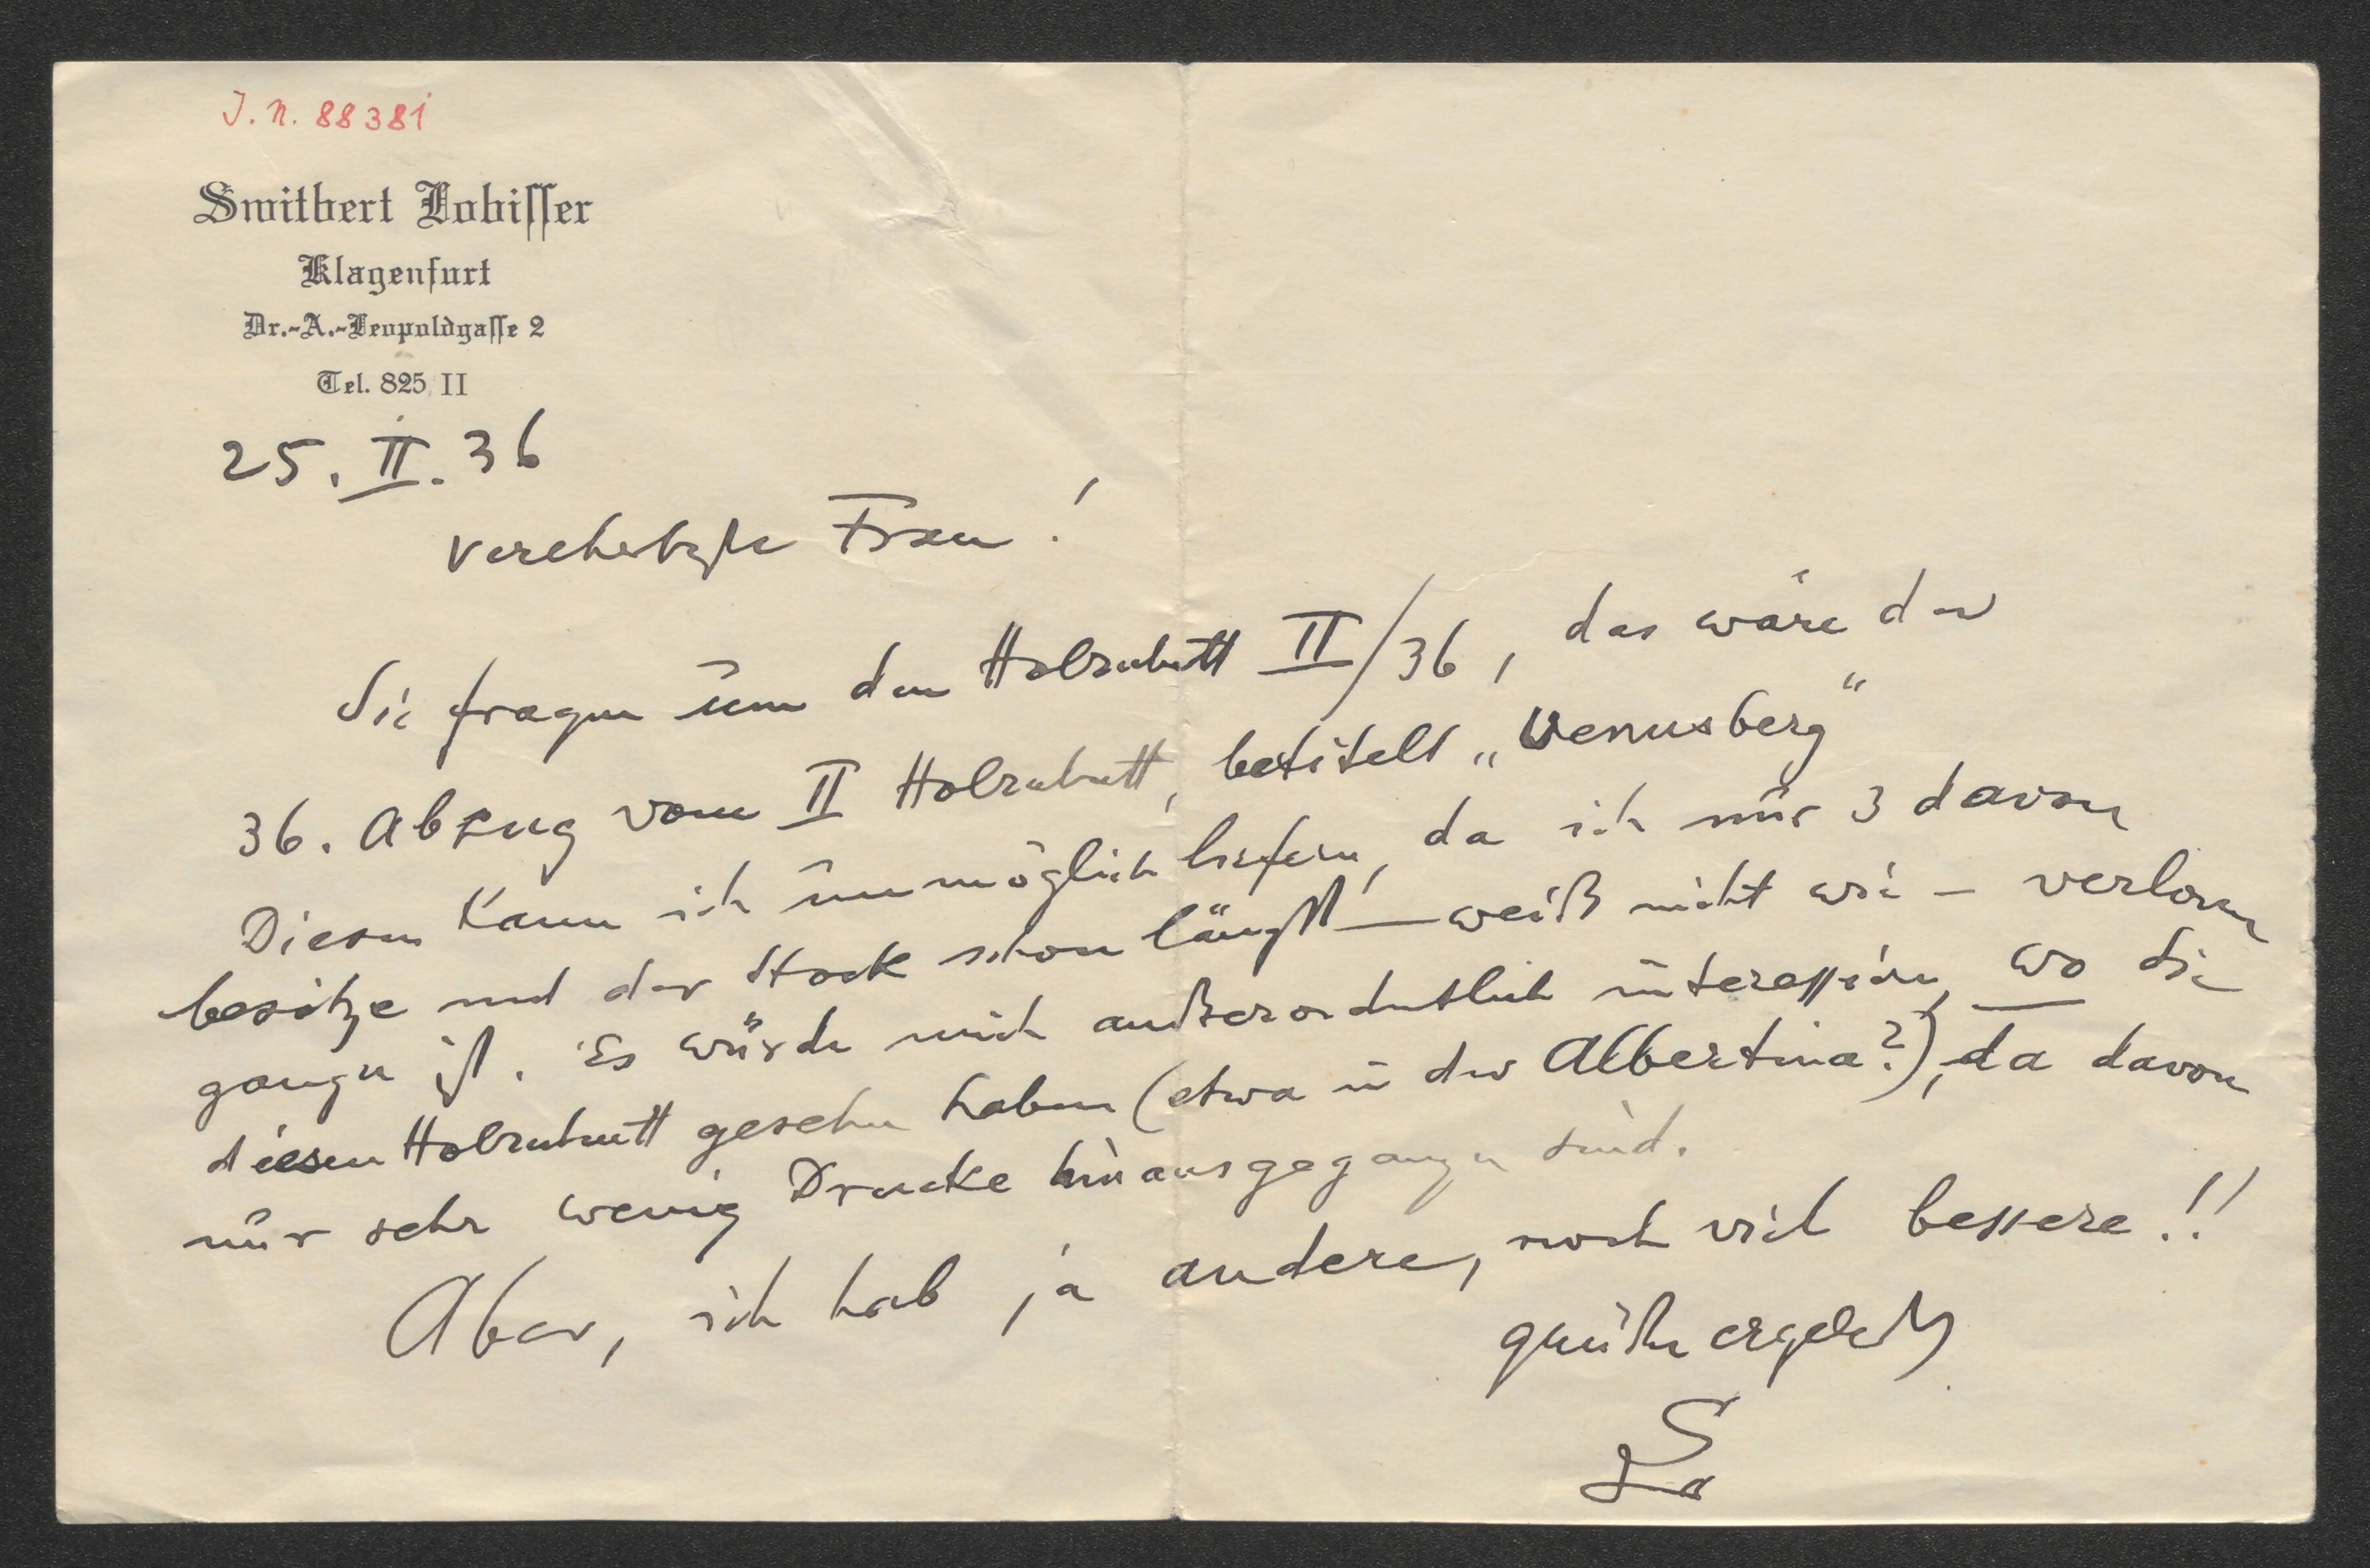 J. N. 88381
Switbert Lobisser
Klagenfurt
Dr.-A.-Leopoldgasse 2
Tel. 825/II
25. II. 36
Verehrteste Frau!
Sie fragen um den Holzschnitt II/36, das wäre der
36. Abzug vom II Holzschnitt, betitelt „Venusberg“
Diesen kann ich unmöglich liefern, da ich nur 3 davon
besitze und der Stock schon längst – weiß nicht wie – verloren
gangen ist. Es würde mich außerordentlich interessieren, wo Sie
diesen Holzschnitt gesehen haben (etwa in der Albertina?), da davon
nur sehr wenig Drucke hinausgegangen sind.
Aber, ich hab ja andere, noch viel bessere!!
grüße ergebenst
SL